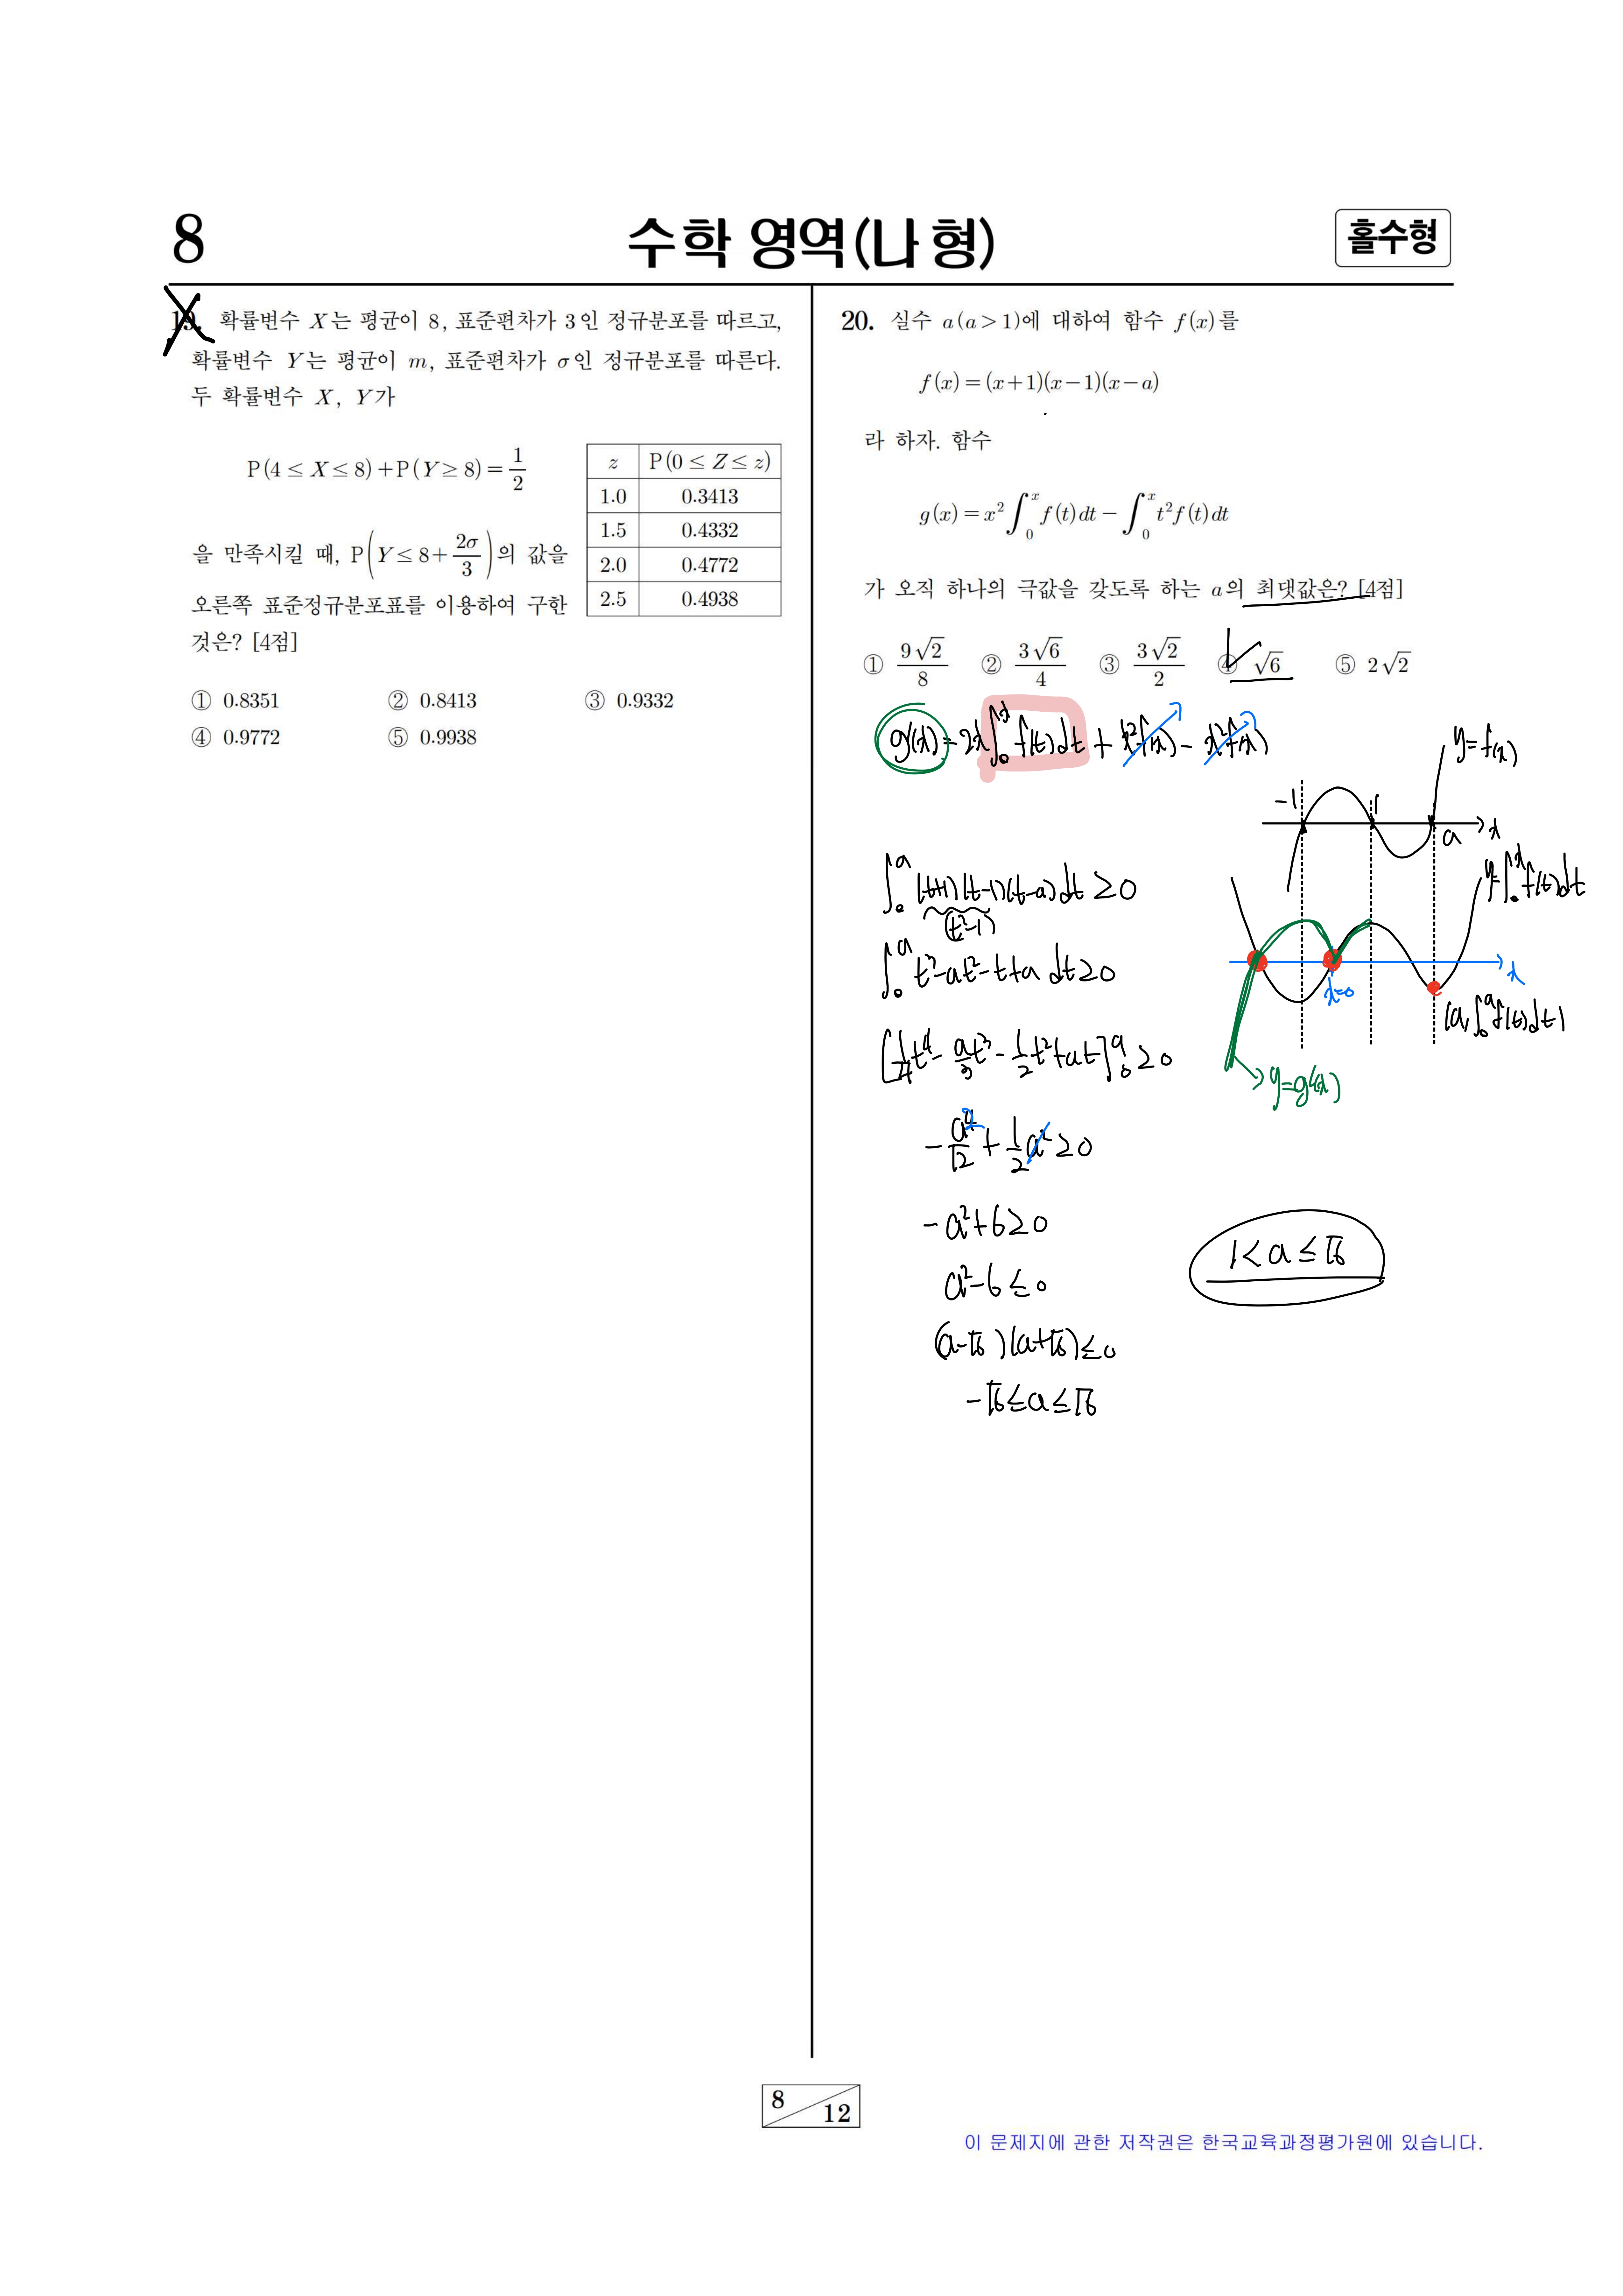 8
수학 영역(나 형)
홀수형
19. 확률변수 X는 평균이 8, 표준편차가 3인 정규분포를 따르고,
확률변수 Y는 평균이 m, 표준편차가 σ인 정규분포를 따른다.
두 확률변수 X, Y가
P(4 ≤ X ≤ 8) + P(Y ≥ 8) = 1/2
을 만족시킬 때, P(Y ≤ 8 + 2σ/3)의 값을
오른쪽 표준정규분포표를 이용하여 구한
것은? [4점]
z P(0 ≤ Z ≤ z)
1.0 0.3413
1.5 0.4332
2.0 0.4772
2.5 0.4938
① 0.8351 ② 0.8413 ③ 0.9332
④ 0.9772 ⑤ 0.9938
20. 실수 a(a > 1)에 대하여 함수 f(x)를
f(x) = (x+1)(x−1)(x−a)
라 하자. 함수
g(x) = x²∫₀ˣ f(t)dt − ∫₀ˣ t²f(t)dt
가 오직 하나의 극값을 갖도록 하는 a의 최댓값은? [4점]
① 9√2/8 ② 3√6/4 ③ 3√2/2 ④ √6 ⑤ 2√2
g'(x) = 2x∫₀ˣ f(t)dt + x²f(x) − x²f(x)
y=f(x)
-1 1 a x
y=∫₀ˣ f(t)dt
x=0 x
(a, ∫₀ᵃ f(t)dt)
y=g'(x)
∫₀ᵃ (t+1)(t-1)(t-a)dt ≥ 0
(t²-1)
∫₀ᵃ t³-at²-t+a dt ≥ 0
[1/4 t⁴ - a/3 t³ - 1/2 t² + at]₀ᵃ ≥ 0
- a⁴/12 + 1/2 a² ≥ 0
2
-a²+6 ≥ 0
a²-6 ≤ 0
(a-√6)(a+√6) ≤ 0
-√6 ≤ a ≤ √6
1 < a ≤ √6
8 12
이 문제지에 관한 저작권은 한국교육과정평가원에 있습니다.